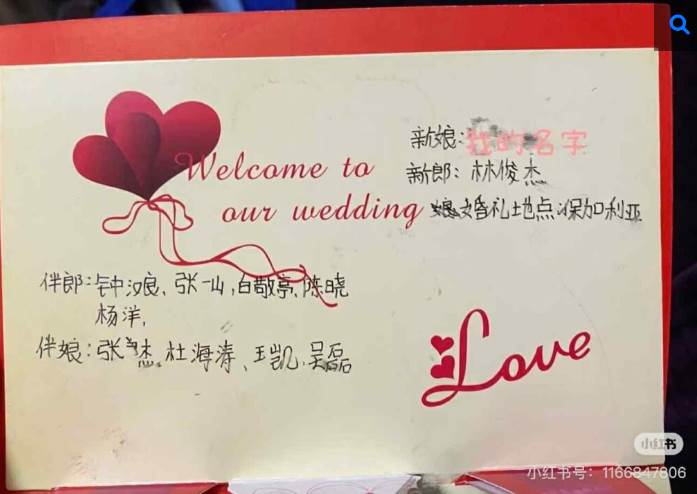 Welcome to
our wedding
新娘:我的名字
新郎:林俊杰
婚礼地点:保加利亚
伴郎:钟汉良、张一山,白敬亭,陈晓
杨洋,
伴娘:张杰。杜海涛、王凯,吴磊
Love
小红书
小红书号:1166847806